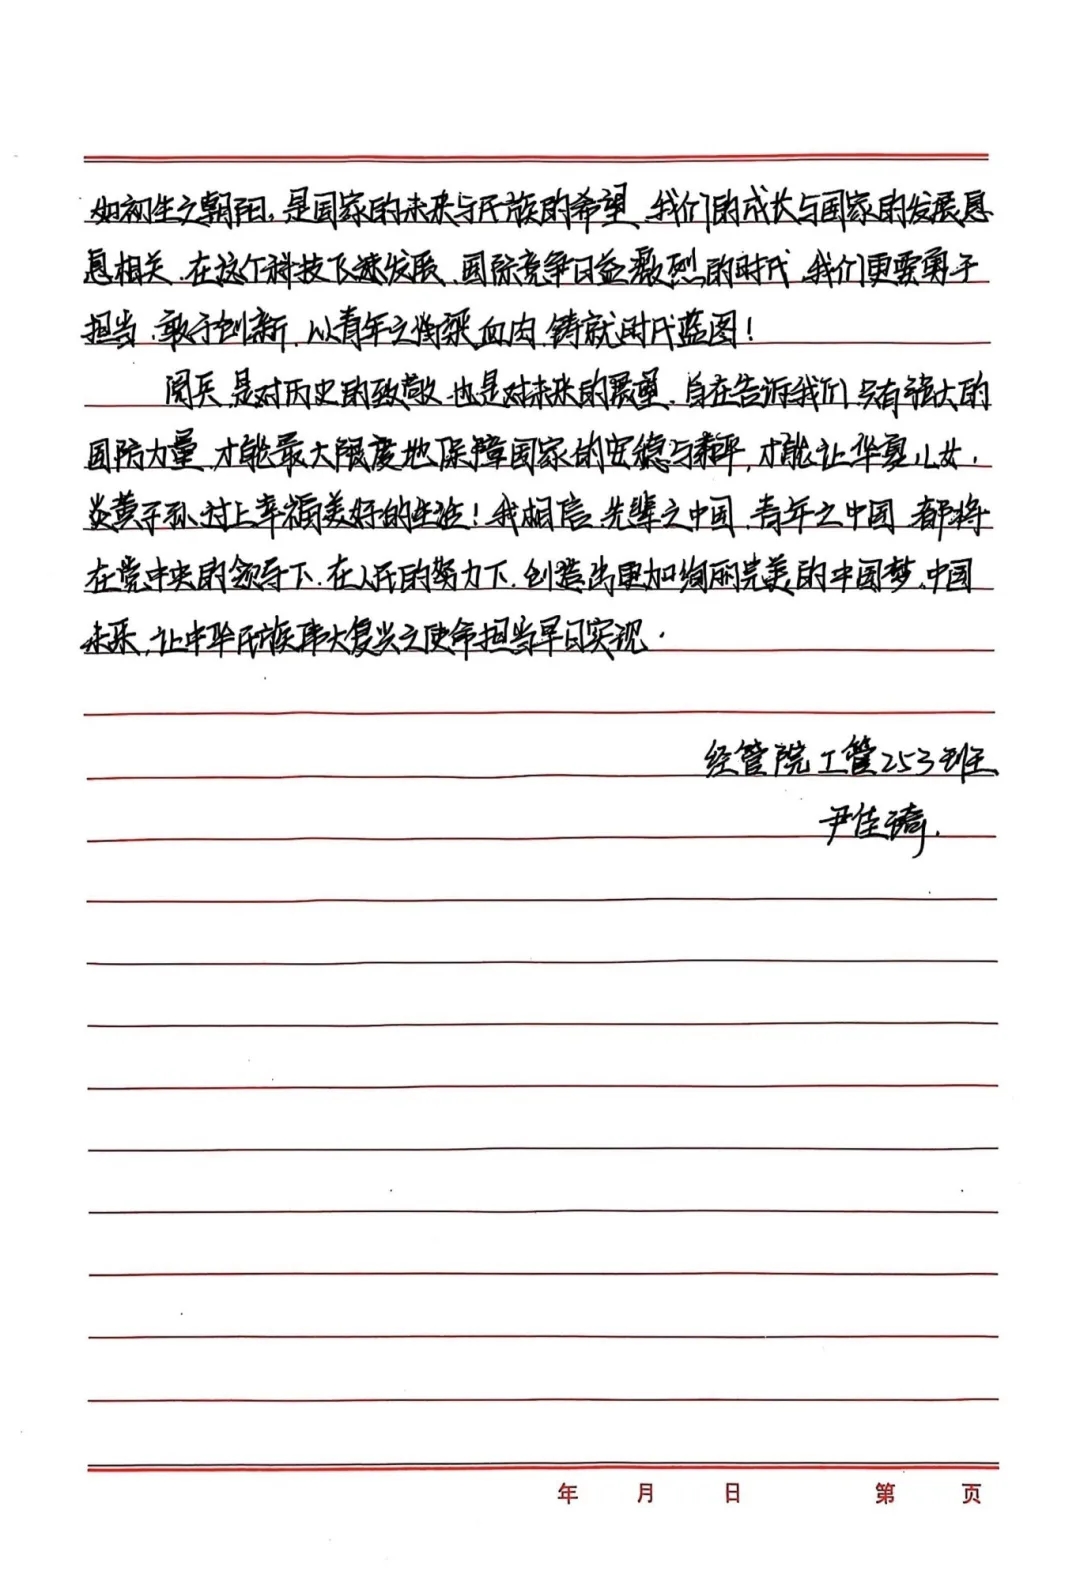 如初生之朝阳，是国家的未来与民族的希望，我们的成长与国家的发展息
息相关，在这个科技飞速发展、国际竞争日益激烈的时代，我们更要勇于
担当，敢于创新，以青年之脊梁血肉，铸就时代蓝图！
阅兵，是对历史的致敬，也是对未来的展望，旨在告诉我们，只有强大的
国防力量，才能最大限度地保障国家的安稳与和平，才能让华夏儿女，
炎黄子孙过上幸福美好的生活！我相信，先辈之中国，青年之中国，都将
在党中央的领导下，在人民的努力下，创造出更加绚丽完美的中国梦，中国
未来，让中华民族伟大复兴之使命担当早日实现．
经管院工管253班
尹佳琦．
年 月 日 第 页